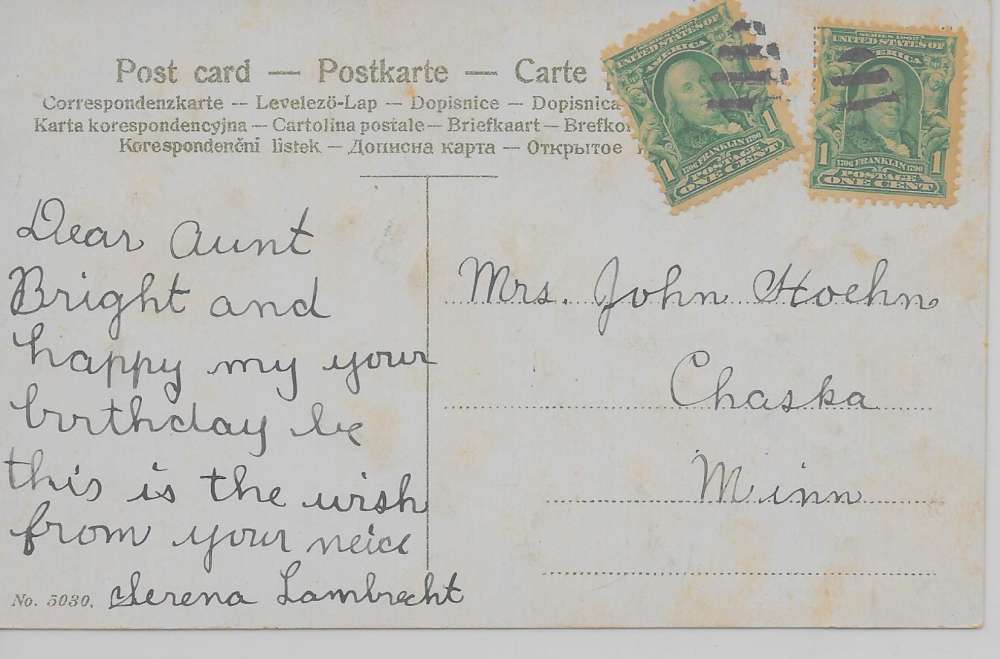 Post card — Postkarte — Carte
Correspondenzkarte — Levelező-Lap — Dopisnice — Dopisnica
Karta korespondencyjna — Cartolina postale — Briefkaart — Brefkor
Korespondenční lístek — Дописна карта — Открытое
SERIES 1902
UNITED STATES OF
AMERICA
1 1706 FRANKLIN 1790 1
POSTAGE
ONE CENT
SERIES 1902
UNITED STATES OF
AMERICA
1 1706 FRANKLIN 1790 1
POSTAGE
ONE CENT
Dear Aunt
Bright and
happy my your
birthday be
this is the wish
from your neice
Serena Lambrecht
Mrs. John Hoehn
Chaska
Minn
No. 5030.